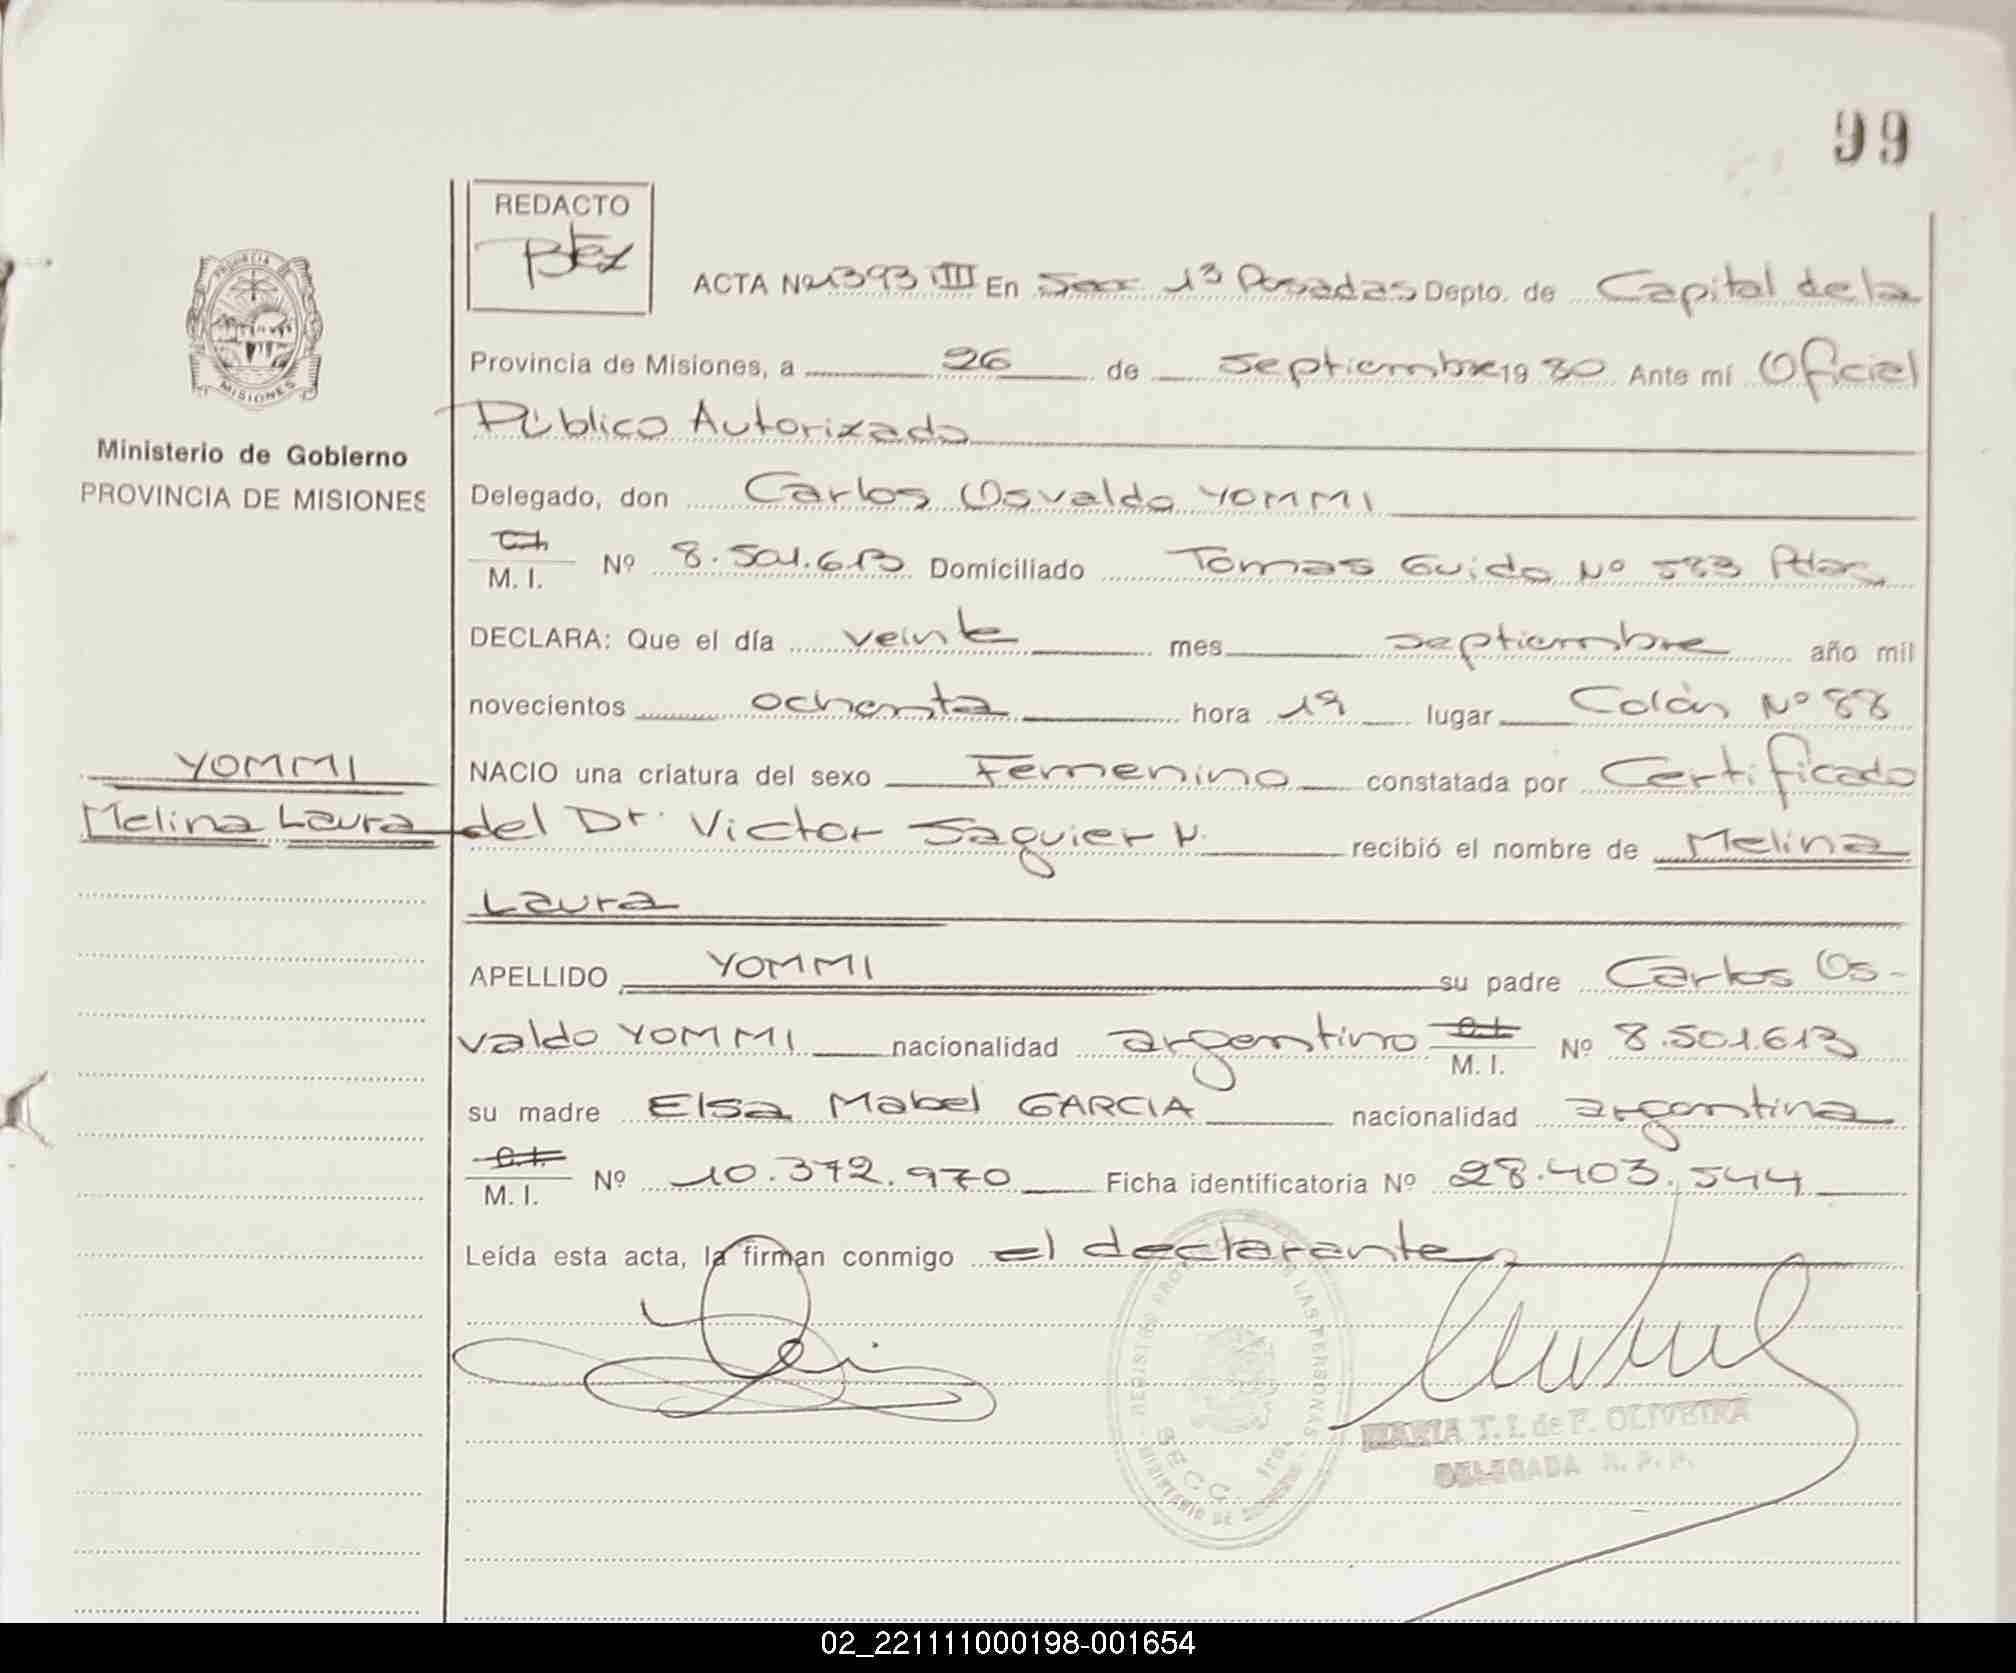 99
REDACTO
ACTA Nº 1393 III En Secc 1ª Posadas Depto. de Capital de la
Provincia de Misiones, a 26 de Septiembre 19 80 Ante mí Oficial
Público Autorizado
Ministerio de Gobierno
PROVINCIA DE MISIONES
Delegado, don Carlos Osvaldo YOMMI
C.I.
M. I. Nº 8.501.613 Domiciliado Tomas Guido Nº 583 Pdas
DECLARA: Que el día veinte mes septiembre año mil
novecientos ochenta hora 19 lugar Colón Nº 88
YOMMI
Melina Laura
NACIO una criatura del sexo Femenino constatada por Certificado
del Dr. Victor Saguier N. recibió el nombre de Melina
Laura
APELLIDO YOMMI su padre Carlos Os-
valdo YOMMI nacionalidad argentino C.I. M. I. Nº 8.501.613
su madre Elsa Mabel GARCIA nacionalidad argentina
C.I.
M. I. Nº 10.372.970 Ficha identificatoria Nº 28.403.544
Leída esta acta, la firman conmigo el declarante
MARIA T. I. de F. OLIVEIRA
DELEGADA R. P. P.
PROVINCIA
MISIONES
LAS PERSONAS
SECC. 1ra.
MINISTERIO DE GOBIERNO
02_221111000198-001654